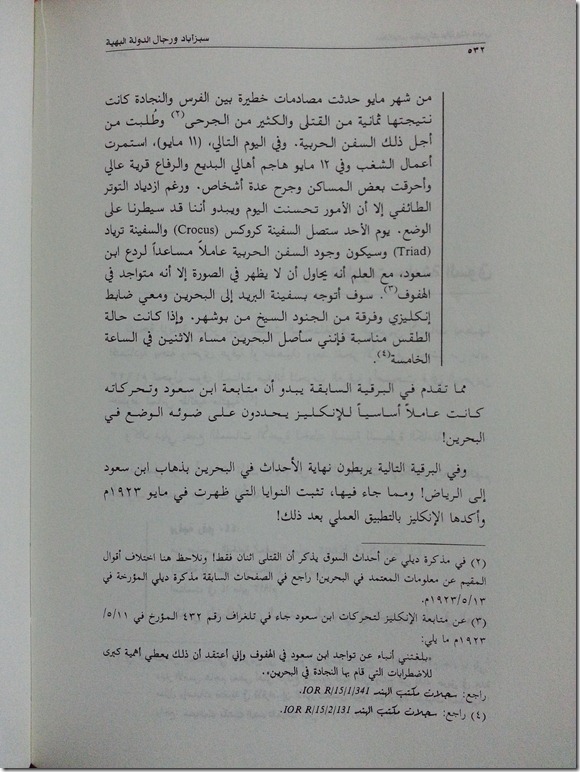 سبزآباد ورجال الدولة البهية
٥٣٢
من شهر مايو حدثت مصادمات خطيرة بين الفرس والنجادة كانت
نتيجتها ثمانية من القتلى والكثير من الجرحى(٢) وطُلبت من
أجل ذلك السفن الحربية. وفي اليوم التالي، (١١ مايو)، استمرت
أعمال الشغب وفي ١٢ مايو هاجم أهالي البديع والرفاع قرية عالي
وأحرقت بعض المساكن وجرح عدة أشخاص. ورغم ازدياد التوتر
الطائفي إلا أن الأمور تحسنت اليوم ويبدو أننا قد سيطرنا على
الوضع. يوم الأحد ستصل السفينة كروكس (Crocus) والسفينة ترياد
(Triad) وسيكون وجود السفن الحربية عاملاً مساعداً لردع ابن
سعود، مع العلم أنه يحاول أن لا يظهر في الصورة إلا أنه متواجد في
الهفوف(٣). سوف أتوجه بسفينة البريد إلى البحرين ومعي ضابط
إنكليزي وفرقة من الجنود السيخ من بوشهر. وإذا كانت حالة
الطقس مناسبة فإنني سأصل البحرين مساء الاثنين في الساعة
الخامسة(٤).
مما تقدم في البرقية السابقة يبدو أن متابعة ابن سعود وتحركاته
كانت عاملاً أساسياً للإنكليز يحددون على ضوئه الوضع في
البحرين!
وفي البرقية التالية يربطون نهاية الأحداث في البحرين بذهاب ابن سعود
إلى الرياض! ومما جاء فيها، تثبت النوايا التي ظهرت في مايو ١٩٢٣م
وأكدها الإنكليز بالتطبيق العملي بعد ذلك!
(٢) في مذكرة ديلي عن أحداث السوق يذكر أن القتلى اثنان فقط! ونلاحظ هنا اختلاف أقوال
المقيم عن معلومات المعتمد في البحرين! راجع في الصفحات السابقة مذكرة ديلي المؤرخة في
١٩٢٣/٥/١٣م.
(٣) عن متابعة الإنكليز لتحركات ابن سعود جاء في تلغراف رقم ٤٣٢ المؤرخ في ٥/١١/
١٩٢٣م ما يلي:
«بلغتني أنباء عن تواجد ابن سعود في الهفوف وإني أعتقد أن ذلك يعطي أهمية كبرى
للاضطرابات التي قام بها النجادة في البحرين».
راجع: سجلات مكتب الهند IOR R/15/1/341.
(٤) راجع: سجلات مكتب الهند IOR R/15/2/131.